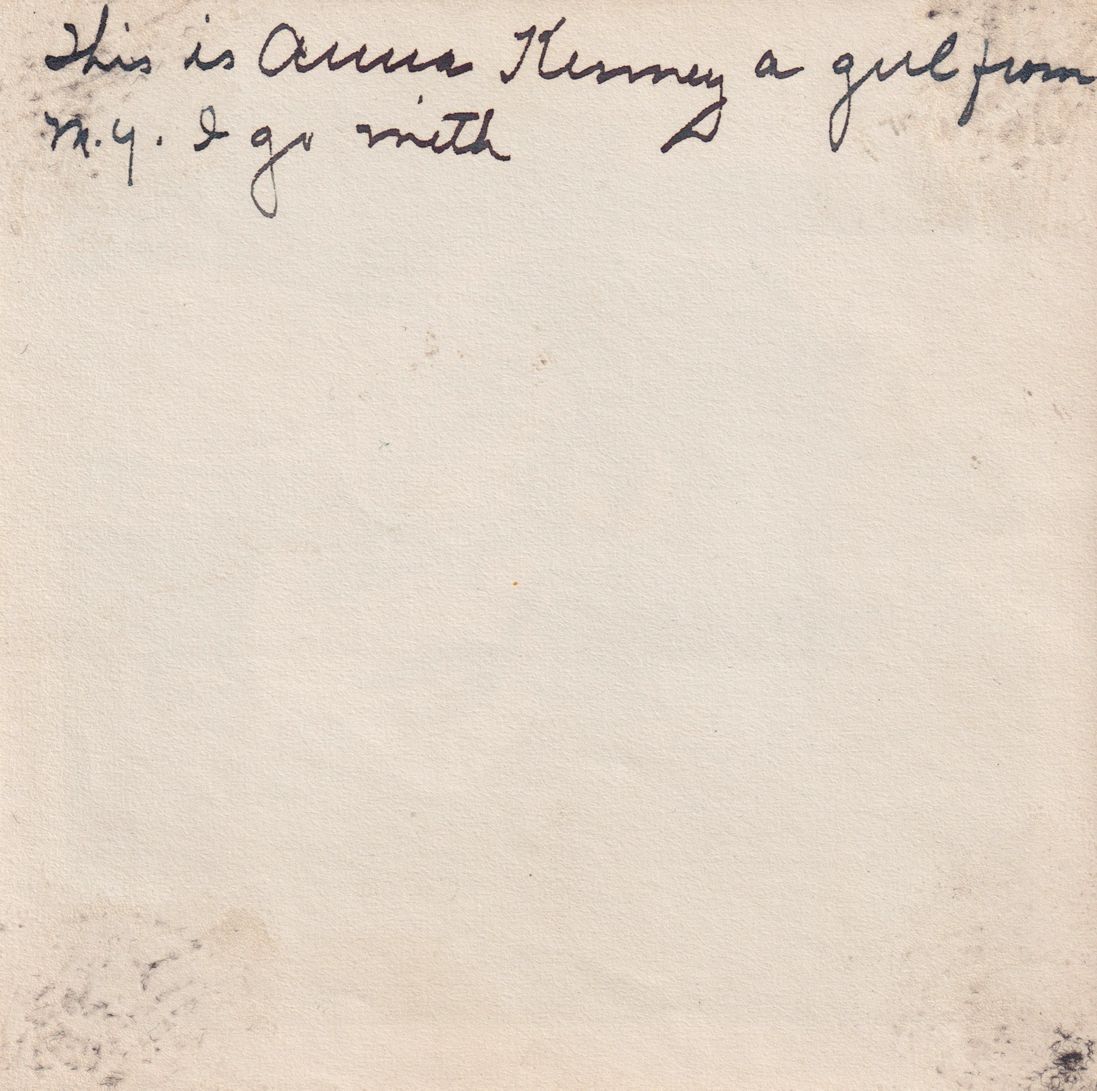 This is Anna Kenney a girl from
N.Y. I go with